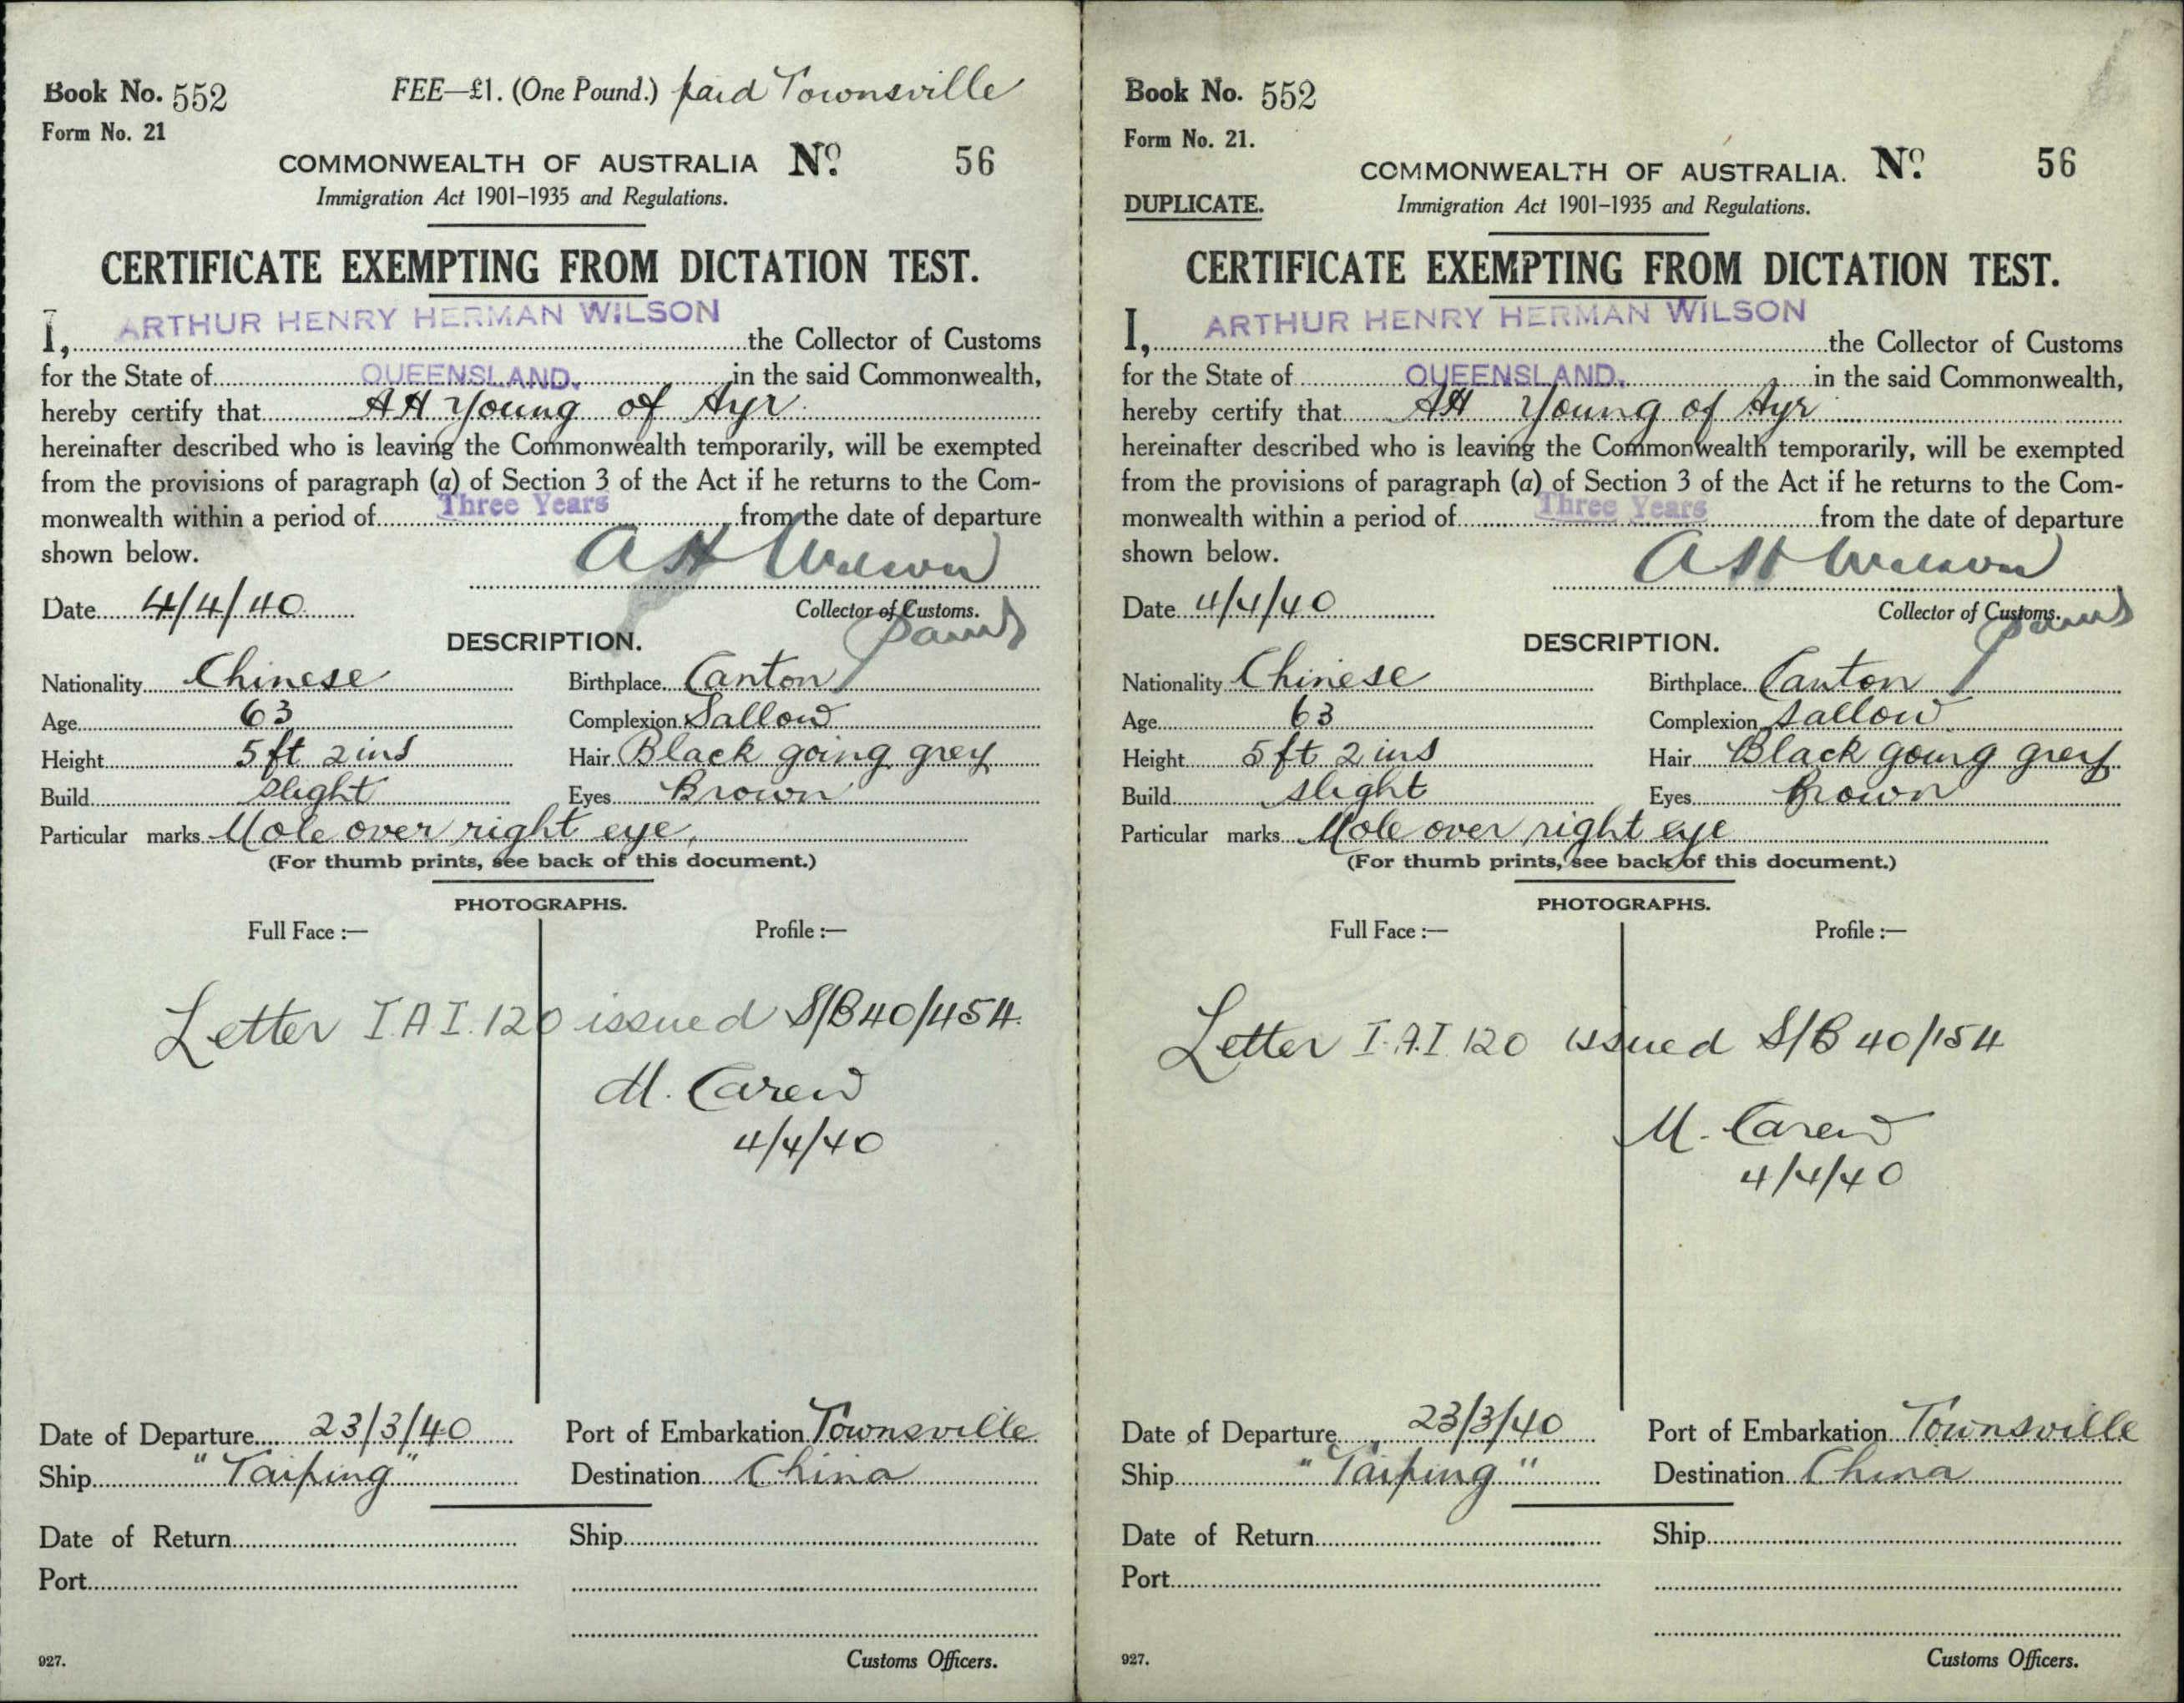 Book No. 552
FEE—£1. (One Pound.) paid Townsville
Form No. 21
COMMONWEALTH OF AUSTRALIA No. 56
Immigration Act 1901–1935 and Regulations.
CERTIFICATE EXEMPTING FROM DICTATION TEST.
I, ARTHUR HENRY HERMAN WILSON the Collector of Customs
for the State of QUEENSLAND. in the said Commonwealth,
hereby certify that AH Young of Ayr
hereinafter described who is leaving the Commonwealth temporarily, will be exempted
from the provisions of paragraph (a) of Section 3 of the Act if he returns to the Com-
monwealth within a period of Three Years from the date of departure
shown below.
A H Wilson
Date 4/4/40
Collector of Customs.
DESCRIPTION.
Nationality Chinese Birthplace Canton
Age 63 Complexion Sallow
Height 5 ft 2 ins Hair Black going grey
Build slight Eyes Brown
Particular marks Mole over right eye
(For thumb prints, see back of this document.)
PHOTOGRAPHS.
Full Face :— Profile :—
Letter I.A.I. 120 issued S/B 40/454
M. Carew
4/4/40
Date of Departure 23/3/40 Port of Embarkation Townsville
Ship "Taiping" Destination China
Date of Return Ship
Port
927. Customs Officers.
Book No. 552
Form No. 21.
COMMONWEALTH OF AUSTRALIA. No. 56
DUPLICATE. Immigration Act 1901–1935 and Regulations.
CERTIFICATE EXEMPTING FROM DICTATION TEST.
I, ARTHUR HENRY HERMAN WILSON the Collector of Customs
for the State of QUEENSLAND. in the said Commonwealth,
hereby certify that AH Young of Ayr
hereinafter described who is leaving the Commonwealth temporarily, will be exempted
from the provisions of paragraph (a) of Section 3 of the Act if he returns to the Com-
monwealth within a period of Three Years from the date of departure
shown below.
A H Wilson
Date 4/4/40
Collector of Customs.
DESCRIPTION.
Nationality Chinese Birthplace Canton
Age 63 Complexion Sallow
Height 5 ft 2 ins Hair Black going grey
Build slight Eyes Brown
Particular marks Mole over right eye
(For thumb prints, see back of this document.)
PHOTOGRAPHS.
Full Face :— Profile :—
Letter I.A.I 120 issued S/B 40/154
M. Carew
4/4/40
Date of Departure 23/3/40 Port of Embarkation Townsville
Ship "Taiping" Destination China
Date of Return Ship
Port
927. Customs Officers.